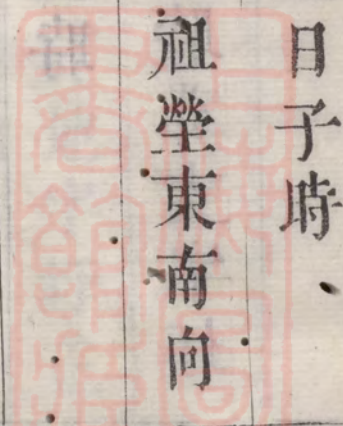 日子時
祖塋東南向